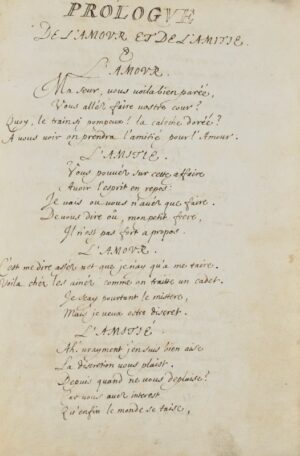 PROLOGVE
DE L'AMOVR ET DE L'AMITIE.
L'AMOVR.
Ma sœur, vous voila bien parée,
Vous allés faire vostre cour?
Quoy, le train si pompeux! la caloche dorée?
A vous voir on prendra l'amitié pour l'Amour.
L'AMITIE.
Vous pouvés sur cette affaire
Avoir l'esprit en repos:
Je vais ou vous n'avés que faire.
De vous dire où, mon petit frere,
Il n'est pas fort a propos.
L'AMOVR.
C'est me dire assés net que je n'ay qu'a me taire.
Voila, cher les ainez comme on traite un cadet.
Je sçay pourtant le mistere,
Mais je veux estre discret.
L'AMITIE.
Ah! vrayment j'en suis bien aise
La discretion vous plaist.
Depuis quand ne vous deplaise?
Car vous avez interest
Qu'enfin le monde se taise,